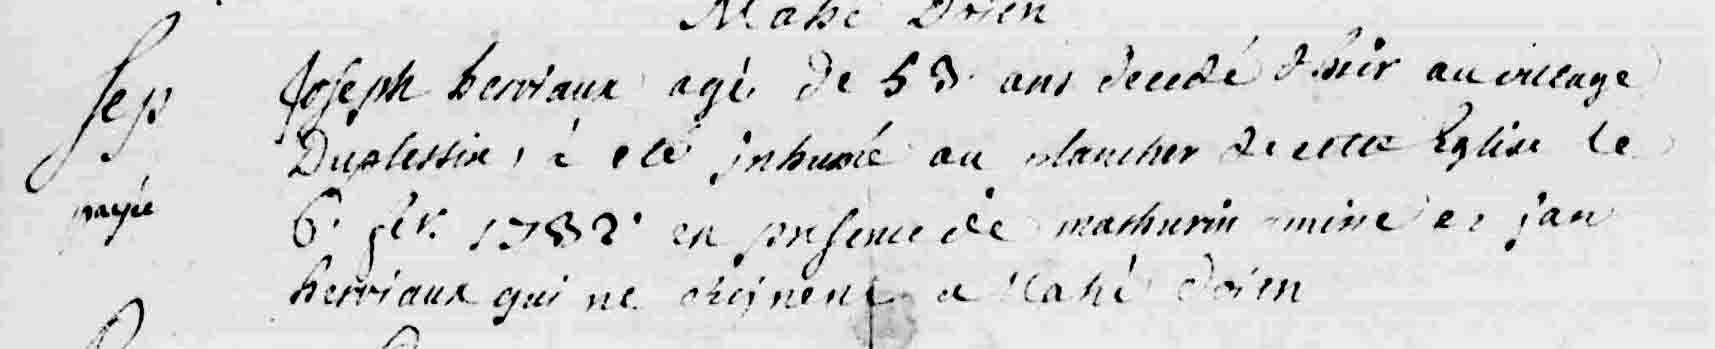 Mahé Doien
Sep
payée
Joseph herviaux agé de 58 ans decedé d'hier au village
Duplessix, à eté inhumé au plancher de cette Eglise le
6. fev. 1782. en presence de mathurin et jan
herviaux qui ne Mahé doien